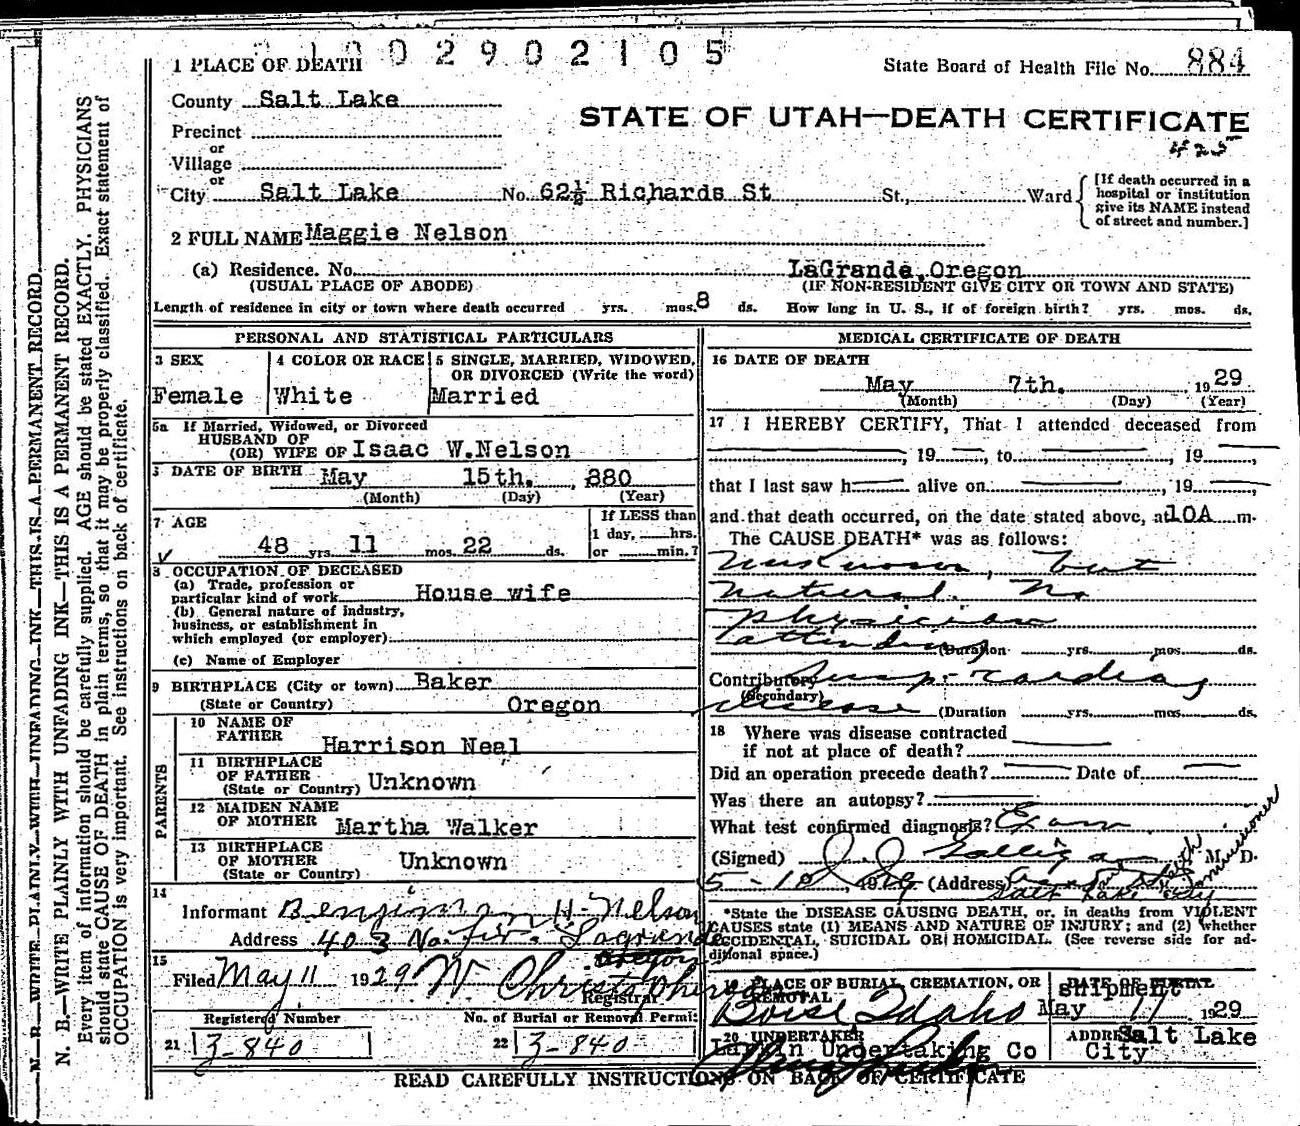 1002902105
1 PLACE OF DEATH
State Board of Health File No. 884
County Salt Lake
STATE OF UTAH—DEATH CERTIFICATE
Precinct
425
or
Village
or
City Salt Lake No. 62½ Richards St St., Ward
[If death occurred in a
hospital or institution
give its NAME instead
of street and number.]
2 FULL NAME Maggie Nelson
(a) Residence. No. LaGrande, Oregon
(USUAL PLACE OF ABODE) (IF NON-RESIDENT GIVE CITY OR TOWN AND STATE)
Length of residence in city or town where death occurred yrs. mos. 8 ds. How long in U. S., if of foreign birth? yrs. mos. ds.
PERSONAL AND STATISTICAL PARTICULARS
3 SEX
Female
4 COLOR OR RACE
White
5 SINGLE, MARRIED, WIDOWED,
OR DIVORCED (Write the word)
Married
5a If Married, Widowed, or Divorced
HUSBAND OF
(OR) WIFE OF Isaac W.Nelson
DATE OF BIRTH May 15th. , 880
(Month) (Day) (Year)
7 AGE
48 yrs. 11 mos. 22 ds.
If LESS than
1 day, hrs.
or min.?
8 OCCUPATION OF DECEASED
(a) Trade, profession or
particular kind of work House wife
(b) General nature of industry,
business, or establishment in
which employed (or employer)
(c) Name of Employer
9 BIRTHPLACE (City or town) Baker
(State or Country) Oregon
PARENTS
10 NAME OF
FATHER Harrison Neal
11 BIRTHPLACE
OF FATHER
(State or Country) Unknown
12 MAIDEN NAME
OF MOTHER Martha Walker
13 BIRTHPLACE
OF MOTHER
(State or Country) Unknown
14
Informant Benjiman H. Nelson
Address 403 No. Fir. Lagrande
Oregon
15
Filed May 11 1929 W Christopherson
Registrar
Registered Number No. of Burial or Removal Permit
21 3-840 22 3-840
MEDICAL CERTIFICATE OF DEATH
16 DATE OF DEATH
May 7th. 1929
(Month) (Day) (Year)
17 I HEREBY CERTIFY, That I attended deceased from
, 19 , to , 19 ,
that I last saw h alive on , 19 ,
and that death occurred, on the date stated above, at 10A m.
The CAUSE DEATH* was as follows:
Unknown, but
natural. No
physician
attending
(Duration yrs. mos. ds.
Contributory Susp. cardiac
(Secondary)
disease (Duration yrs. mos. ds.
18 Where was disease contracted
if not at place of death?
Did an operation precede death? Date of
Was there an autopsy?
What test confirmed diagnosis? Exam
(Signed) J. J. Galligan M. D.
5-10, 1929 (Address) Health Commissioner
Salt Lake City
*State the DISEASE CAUSING DEATH, or, in deaths from VIOLENT
CAUSES state (1) MEANS AND NATURE OF INJURY; and (2) whether
ACCIDENTAL, SUICIDAL OR HOMICIDAL. (See reverse side for ad-
ditional space.)
19 PLACE OF BURIAL, CREMATION, OR
REMOVAL
Boise Idaho
DATE OF BURIAL
shipment
May 11 1929
20 UNDERTAKER
Larkin Undertaking Co
ADDRESS Salt Lake
City
READ CAREFULLY INSTRUCTIONS ON BACK OF CERTIFICATE
N. B.—WRITE PLAINLY WITH UNFADING INK—THIS IS A PERMANENT RECORD.
N. B.—WRITE PLAINLY WITH UNFADING INK—THIS IS A PERMANENT RECORD.
Every item of information should be carefully supplied. AGE should be stated EXACTLY. PHYSICIANS
should state CAUSE OF DEATH in plain terms, so that it may be properly classified. Exact statement of
OCCUPATION is very important. See instructions on back of certificate.